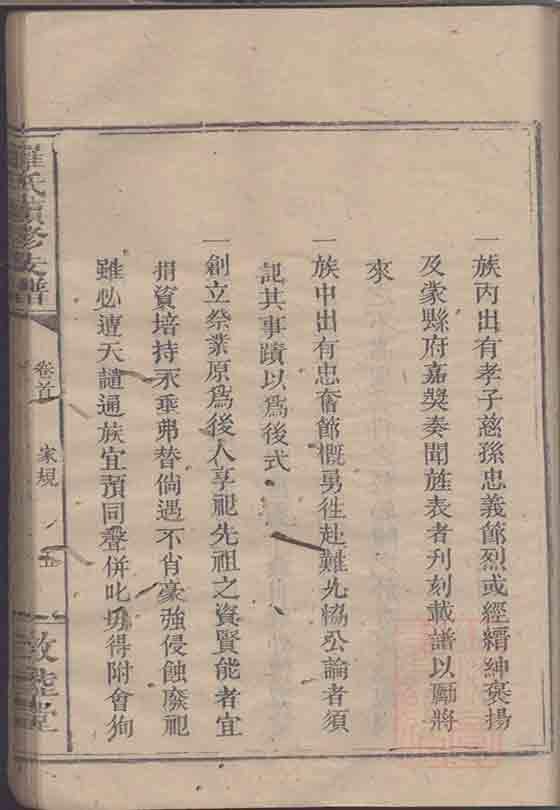 一族內出有孝子慈孫忠義節烈或經縉紳褒揚
及蒙縣府嘉獎奏聞旌表者刋刻載譜以勵將
來
一族中出有忠奮節慨勇徃赴難允協公論者須
記其事蹟以爲後式
一創立祭業原爲後人享祀先祖之資賢能者宜
捐資培持永垂弗替倘遇不肖豪強侵蝕廢祀
雖必遭天譴通族宜預同聲併叱毋得附會狥
羅氏續修支譜
卷首
家規
五
敦睦堂